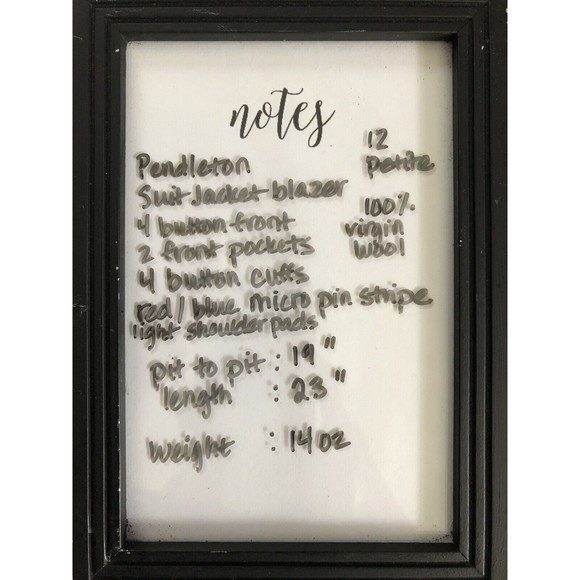 notes
Pendleton
12
Petite
Suit Jacket blazer
4 button front
100%
virgin
wool
2 front pockets
4 button cuffs
red/blue micro pin stripe
light shoulder pads
pit to pit : 19"
length : 23"
weight : 14 oz